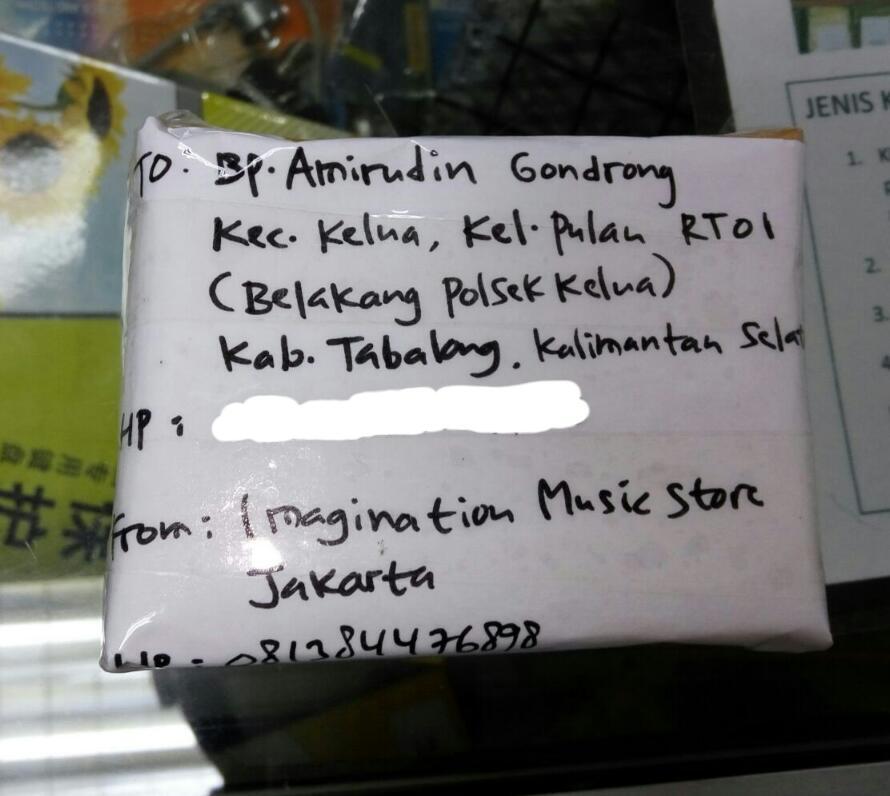 TO: Bp. Amirudin Gondrong
Kec. Kelua, Kel. Pulau RT01
(Belakang Polsek Kelua)
Kab. Tabalong. Kalimantan Selat
HP:
From: Imagination Music Store
Jakarta
HP: 081384476898
JENIS K
1. K
2.
3.